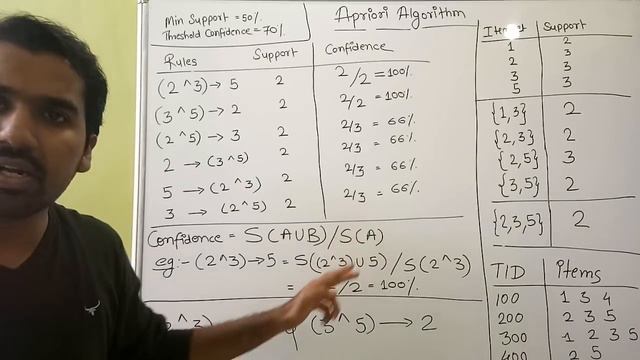 Min Support = 50%
Threshold Confidence = 70%
Apriori Algorithm
Rules Support Confidence
(2^3) → 5 2 2/2 = 100%
(3^5) → 2 2 2/2 = 100%
(2^5) → 3 2 2/3 = 66%
2 → (3^5) 2 2/3 = 66%
5 → (2^3) 2 2/3 = 66%
3 → (2^5) 2 2/3 = 66%
Confidence = S(A∪B)/S(A)
eg:- (2^3) → 5 = S((2^3)∪5) / S(2^3)
= /2 = 100%
^3) (3^5) → 2
Support
1 2
2 3
3 3
5 3
{1,3} 2
{2,3} 2
{2,5} 3
{3,5} 2
{2,3,5} 2
TID Items
100 1 3 4
200 2 3 5
300 1 2 3 5
400 2 5